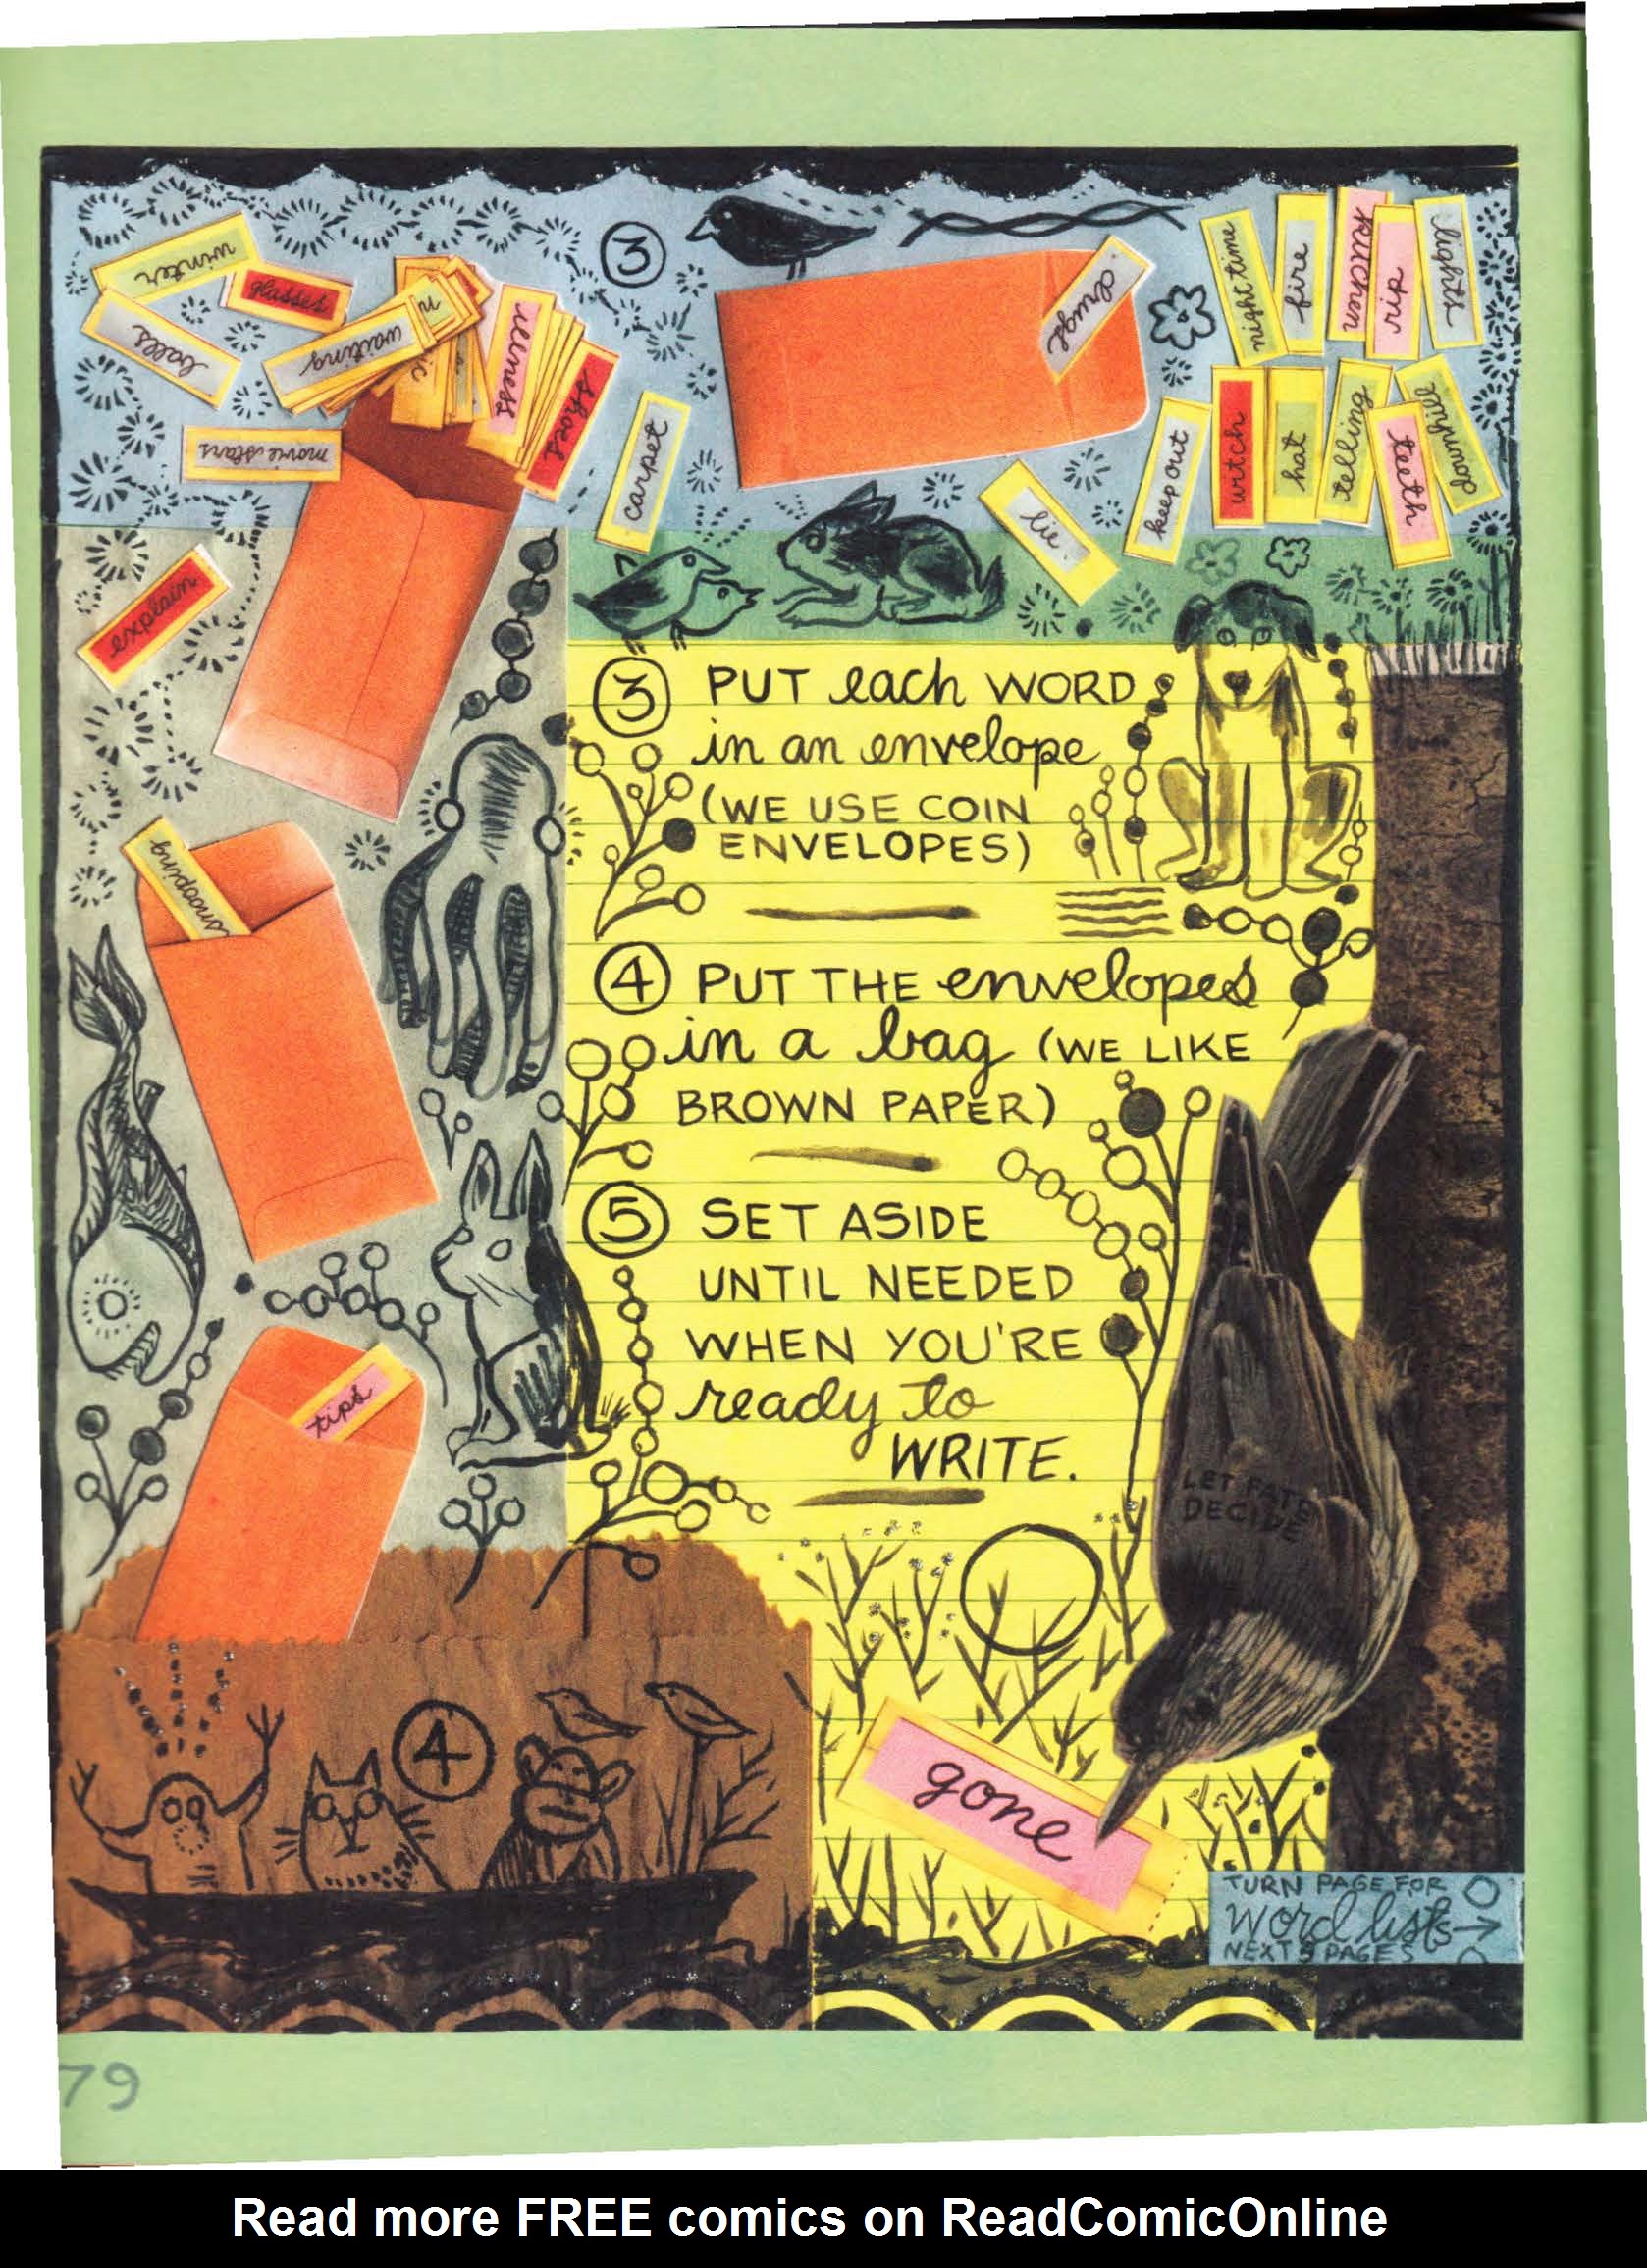 3
winter
glasses
balls
waiting
illness
shoes
movie stars
carpet
drugs
lie.
night time
fire
kitchen
rip
lights
keep out
witch
hat
telling
teeth
downhill
explain
snooping
tips
3 PUT each WORD
in an envelope
(WE USE COIN
ENVELOPES)
4 PUT THE envelopes
in a bag (WE LIKE
BROWN PAPER)
5 SET ASIDE
UNTIL NEEDED
WHEN YOU'RE
ready to
WRITE.
LET FATE
DECIDE
4
gone
TURN PAGE FOR
Word lists
NEXT 5 PAGES
79
Read more FREE comics on ReadComicOnline